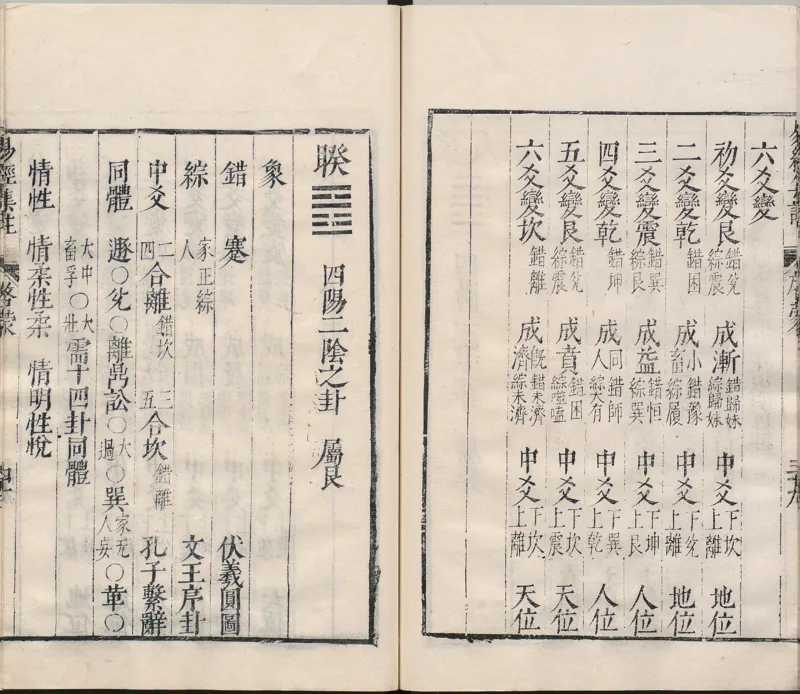 六爻變
初爻變艮 錯兌綜震 成漸 錯歸妹綜歸妹 中爻 下坎上離 地位
二爻變乾 錯困 成小畜 錯豫綜履 中爻 下兌上離 地位
三爻變震 錯巽綜艮 成益 錯恒綜巽 中爻 下坤上艮 人位
四爻變乾 錯坤 成同人 錯師綜大有 中爻 下巽上乾 人位
五爻變艮 錯兌綜震 成賁 錯困綜噬嗑 中爻 下坎上震 天位
六爻變坎 錯離 成既濟 錯未濟綜未濟 中爻 下坎上離 天位
睽 ䷥ 四陽二陰之卦 屬艮
象
錯 蹇 伏羲圓圖
綜 家人正綜 文王序卦
中爻 二四合離錯坎 三五合坎錯離 孔子繫辭
同體 遯○兌○離鼎訟○大過○巽家人无妄○革○
大畜中孚○大壯需十四卦同體
情性 情柔性柔 情明性悅
易經集註 啓蒙